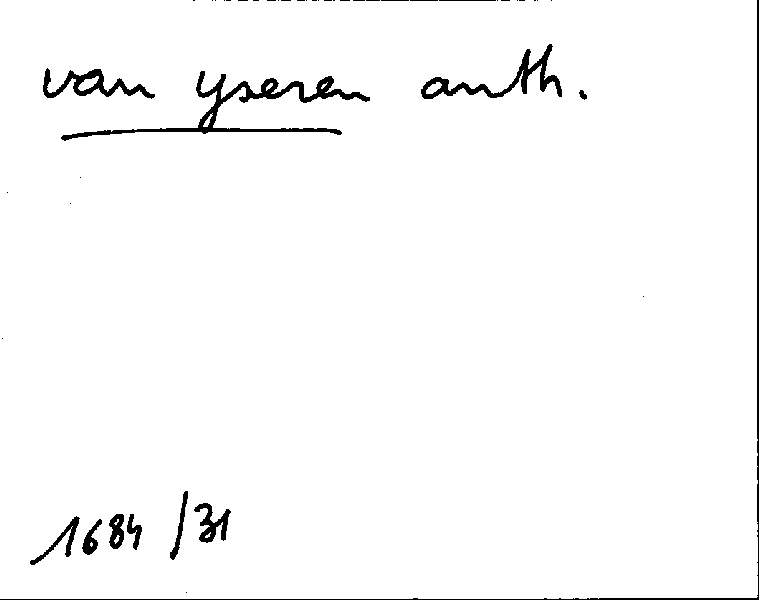 van yseren anth.
1684/31